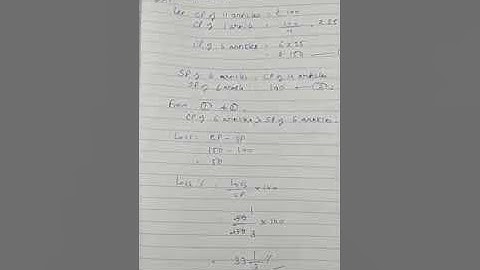 Let CP of 11 articles = ₹ 100
CP of 1 article = 100/11 = ₹ 25
CP of 6 articles = 6 x 25
= ₹ 150
SP of 6 articles = CP of 11 articles
SP of 6 articles = 100
From ① & ②
CP of 6 articles > SP of 6 articles
Loss = CP - SP
150 - 100
= 50
Loss % = Loss/CP x 100
50/150 1/3 x 100
= 33 1/3 %